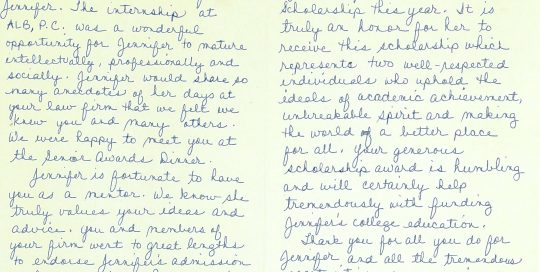 Jennifer. The internship at
ALB, P.C. was a wonderful
opportunity for Jennifer to mature
intellectually, professionally and
socially. Jennifer would share so
many anecdotes of her days at
your law firm that we felt we
knew you and many others.
We were happy to meet you at
the Senior Awards Dinner.
Jennifer is fortunate to have
you as a mentor. We know she
truly values your ideas and
advice. You and members of
your firm went to great lengths
to endorse Jennifer's admission
Scholarship this year. It is
truly an honor for her to
receive this scholarship which
represents two well-respected
individuals who uphold the
ideals of academic achievement,
unbreakable spirit and making
the world of a better place
for all. Your generous
scholarship award is humbling
and will certainly help
tremendously with funding
Jennifer's college education.
Thank you for all you do for
Jennifer and all the tremendous